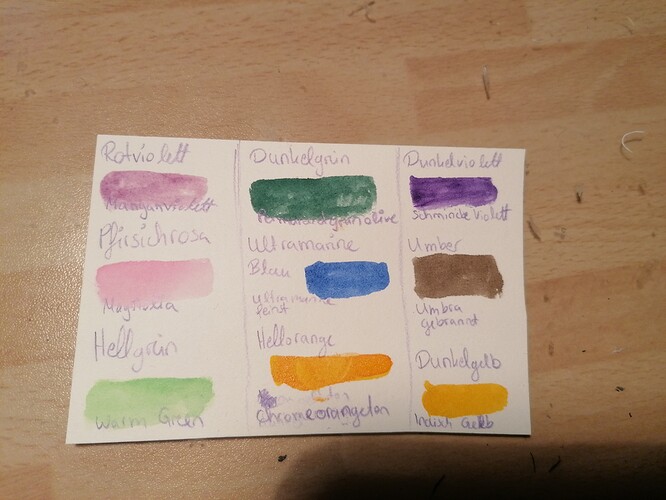 Rotviolett
Manganviolett
Pfirsichrosa
Magnolia
Hellgrün
Warm Green
Dunkelgrün
Permanentgrün olive
Ultramarine
Blau
Ultramarine
feinst
Hellorange
Chromeorangeton
Dunkelviolett
Schmincke Violett
Umber
Umbra
gebrannt
Dunkelgelb
Indisch Gelb